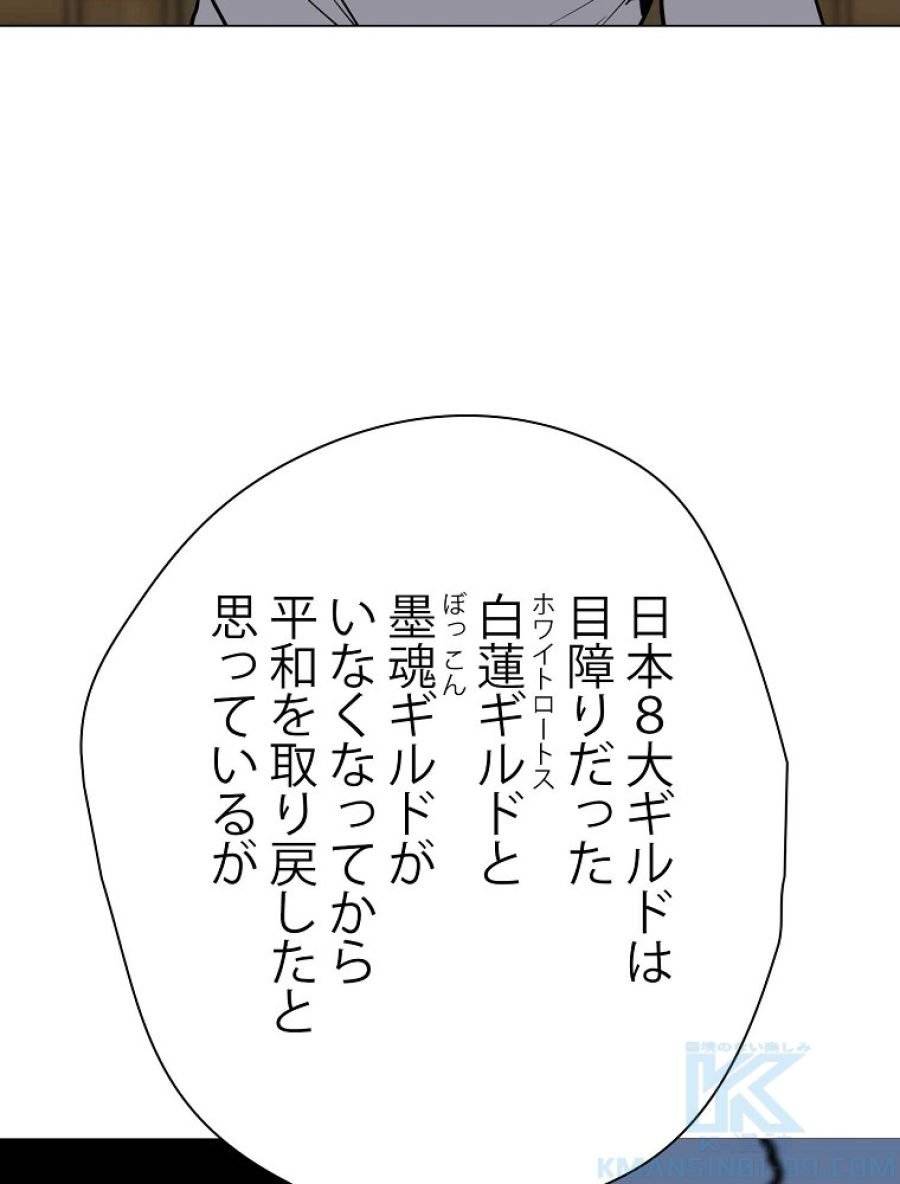 日本８大ギルドは
目障りだった
ホワイトロータス
白蓮ギルドと
ぼっこん
墨魂ギルドが
いなくなってから
平和を取り戻したと
思っているが